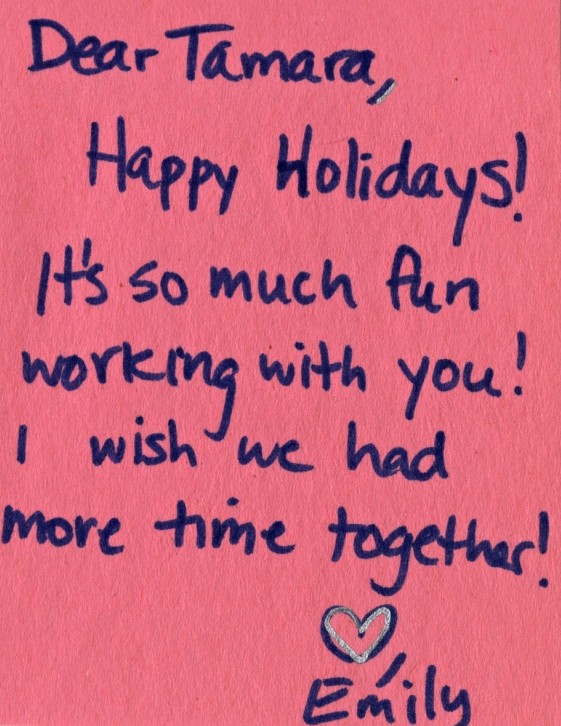 Dear Tamara,
Happy Holidays!
It's so much fun
working with you!
I wish we had
more time together!
♡,
Emily